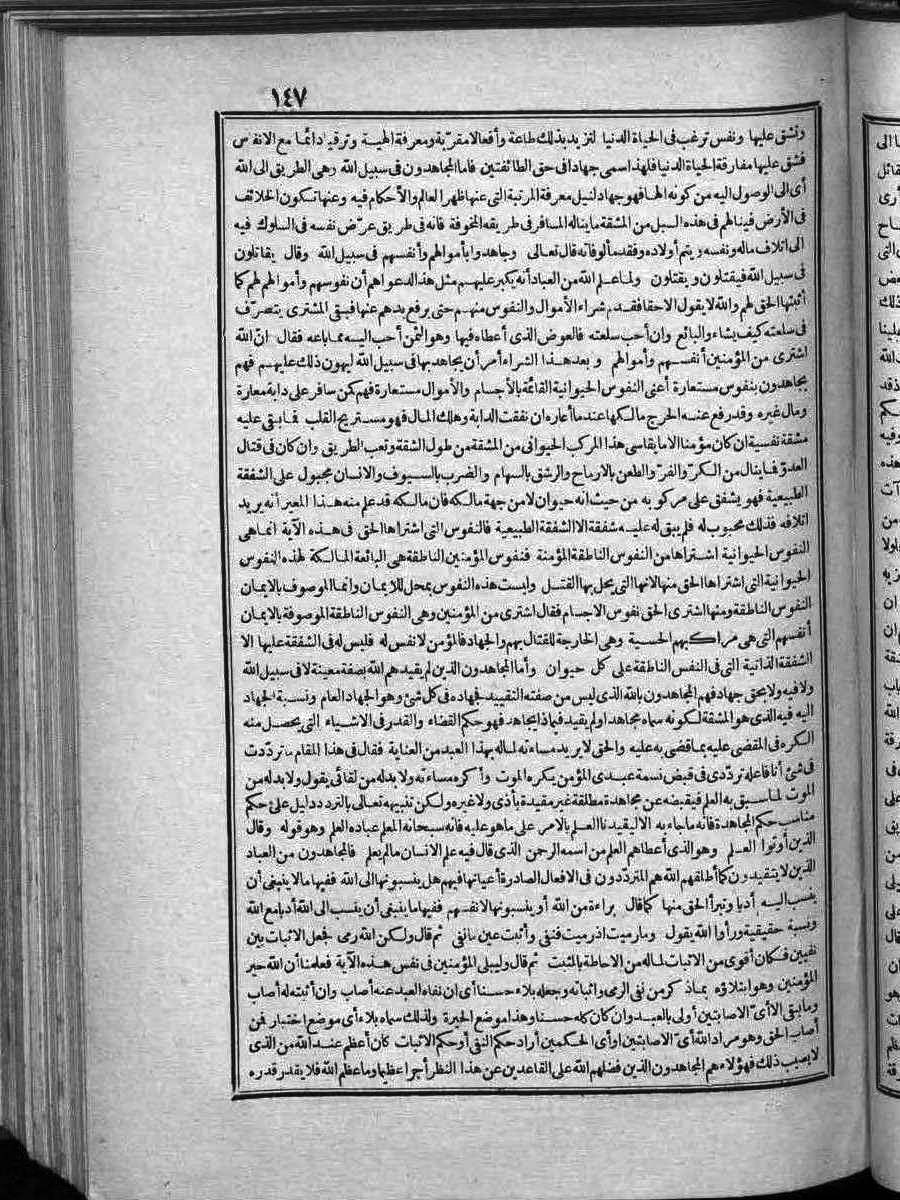 ١٤٧
ونشق عليها ونفس ترغب فى الحياة الدنيا لتزيد بذلك طاعة وأفعالا مقربة ومعرفة الهية وترقيا دائما مع الانفاس
فشق عليها مفارقة الحياة الدنيا فلهذا سمى جهادا فى حق الطائفتين فاما المجاهدون فى سبيل الله وهى الطريق الى الله
أى الى الوصول اليه من كونه الها فهو جهاد لنيل معرفة المرتبة التى عنها ظهر العالم والأحكام فيه وعنها تكون الخلائف
فى الأرض فينالهم فى هذه السبل من المشقة ما يناله المسافر فى طريقه المخوفة فانه فى طريق عرّض نفسه فى السلوك فيه
الى اتلاف ماله ونفسه ويتم أولاده وفقد مألوفاته قال تعالى وجاهدوا بأموالهم وأنفسهم فى سبيل الله وقال يقاتلون
فى سبيل الله فيقتلون ويقتلون ولما علم الله من العباد أنه يكبر عليهم مثل هذا لدعواهم أن نفوسهم وأموالهم لهم كما
أثبتها الحق لهم والله لا يقول الا حقا فقدم شراء الأموال والنفوس منهم حتى يرفع يدهم عنها فبقى المشترى يتصرف
فى سلعته كيف يشاء والبائع وان أحب سلعته فالعوض الذى أعطاه فيها وهو الثمن أحب اليه مما باعه فقال انّ الله
اشترى من المؤمنين أنفسهم وأموالهم وبعد هذا الشراء أمر أن يجاهد بها فى سبيل الله ليهون ذلك عليهم فهم
يجاهدون بنفوس مستعارة أعنى النفوس الحيوانية القائمة بالأجسام والأموال مستعارة فهم كمن سافر على دابة معارة
ومال غيره وقد رفع عنه الحرج مالكها عند ما أعاره ان نفقت الدابة وهلك المال فهو مستريح القلب فما بقى عليه
مشقة نفسية ان كان مؤمنا الا ما يقاسى هذا المركب الحيوانى من المشقة من طول الشقة وتعب الطريق وان كان فى قتال
العدوّ فما ينال من الكرّ والفرّ والطعن بالارماح والرشق بالسهام والضرب بالسيوف والانسان مجبول على الشفقة
الطبيعية فهو يشفق على مركوبه من حيث انه حيوان لا من جهة مالكه فان مالكه قد علم منه هذا المعير أنه يريد
اتلافه فذلك محبوب له فلم يبق له عليه شفقة الا الشفقة الطبيعية فالنفوس التى اشتراها الحق فى هذه الآية انما هى
النفوس الحيوانية اشتراها من النفوس الناطقة المؤمنة فنفوس المؤمنين الناطقة هى البائعة المالكة لهذه النفوس
الحيوانية التى اشتراها الحق منها لانها التى يحل بها القتل وليست هذه النفوس بمحل للايمان وانما الموصوف بالايمان
النفوس الناطقة ومنها اشترى الحق نفوس الاجسام فقال اشترى من المؤمنين وهى النفوس الناطقة الموصوفة بالايمان
أنفسهم التى هى مراكبهم الحسية وهى الخارجة للقتال بهم والجهاد فالمؤمن لا نفس له فليس له فى الشفقة عليها الا
الشفقة الذاتية التى فى النفس الناطقة على كل حيوان وأما المجاهدون الذين لم يقيدهم الله بصفة معينة لا فى سبيل الله
ولا فيه ولا بحق جهاد فهم المجاهدون بالله الذى ليس من صفته التقييد فجهاده فى كل شئ وهو الجهاد العام ونسبة الجهاد
اليه فيه الذى هو المشقة لكونه سماه مجاهدا ولم يقيد فيما ذا يجاهد فهو حكم القضاء والقدر فى الاشياء التى يحصل منه
الكره فى المقضى عليه بما قضى به عليه والحق لا يريد مساءته لما له بهذا العبد من العناية فقال فى هذا المقام ما تردّدت
فى شئ أنا فاعله تردّدى فى قبض نسمة عبدى المؤمن يكره الموت وأكره مساءته ولا بد له من لقائى يقول ولا بد له من
الموت لما سبق به العلم فيقبضه عن مجاهدة مطلقة غير مقيدة بأذى ولا غيره ولكن تنبيهه تعالى بالتردد دليل على حكم
مناسب حكم المجاهدة فانه ما جاء به الا ليفيدنا العلم بالامر على ما هو عليه فانه سبحانه المعلم عباده العلم وهو قوله وقال
الذين أوتوا العلم وهو الذى أعطاهم العلم من اسمه الرحمن الذى قال فيه علم الانسان ما لم يعلم فالمجاهدون من العباد
الذين لا يتقيدون كما أطلقهم الله هم المتردّدون فى الافعال الصادرة أعيانها فيهم هل ينسبونها الى الله ففيها ما لا ينبغى أن
ينسب اليه أدبا وتبرأ الحق منها كما قال براءة من الله أو ينسبونها لانفسهم ففيها ما ينبغى أن ينسب الى الله أدبا مع الله
ونسبة حقيقية ورأوا الله يقول وما رميت اذ رميت فنفى وأثبت عين ما نفى ثم قال ولكن الله رمى فجعل الاثبات بين
نفيين فكان أقوى من الاثبات لما له من الاحاطة بالمثبت ثم قال وليبلى المؤمنين فى نفس هذه الآية فعلمنا أن الله حير
المؤمنين وهو ابتلاؤه بما ذكر من نفى الرمى واثباته وجعله بلاء حسنا أى ان نفاه العبد عنه أصاب وان أثبته له أصاب
وما بقى الا أى الاصابتين أولى بالعبد وان كان كله حسنا وهذا موضع الحيرة ولذلك سماه بلاء أى موضع اختبار فمن
أصاب الحق وهو مراد الله أى الاصابتين أو أى الحكمين أراد حكم النفى أو حكم الاثبات كان أعظم عند الله من الذى
لا يصيب ذلك فهؤلاء هم المجاهدون الذين فضلهم الله على القاعدين عن هذا النظر أجرا عظيما وما عظم الله فلا يقدر قدره